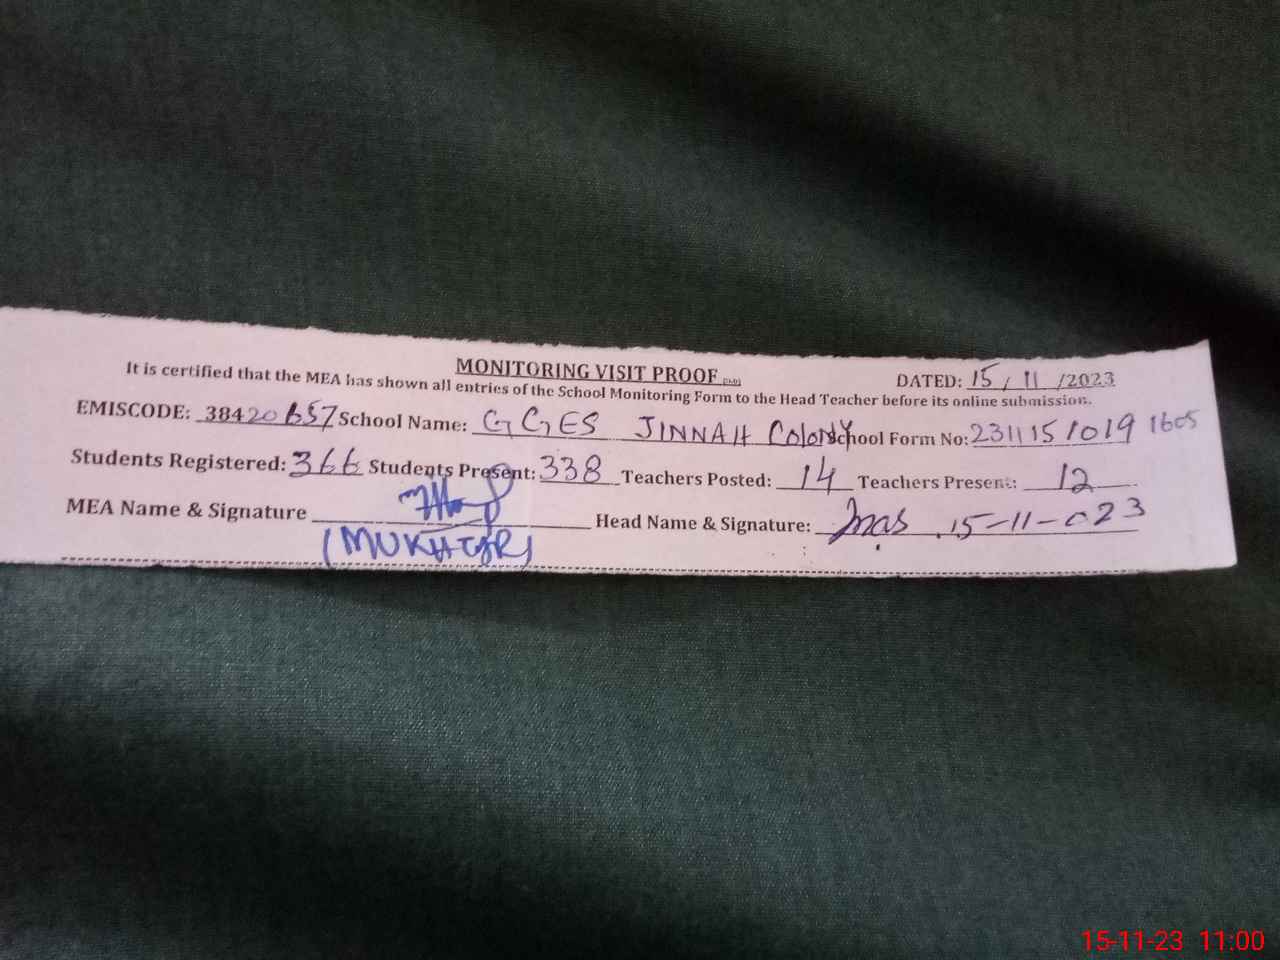 MONITORING VISIT PROOF
DATED: 15 / 11 /2023
It is certified that the MEA has shown all entries of the School Monitoring Form to the Head Teacher before its online submission.
EMISCODE: 38420657 School Name: GGES JINNAH Colony School Form No: 2311151019 1605
Students Registered: 366 Students Present: 338 Teachers Posted: 14 Teachers Present: 12
MEA Name & Signature Head Name & Signature: 15-11-023
(MUKHTAR)
15-11-23 11:00